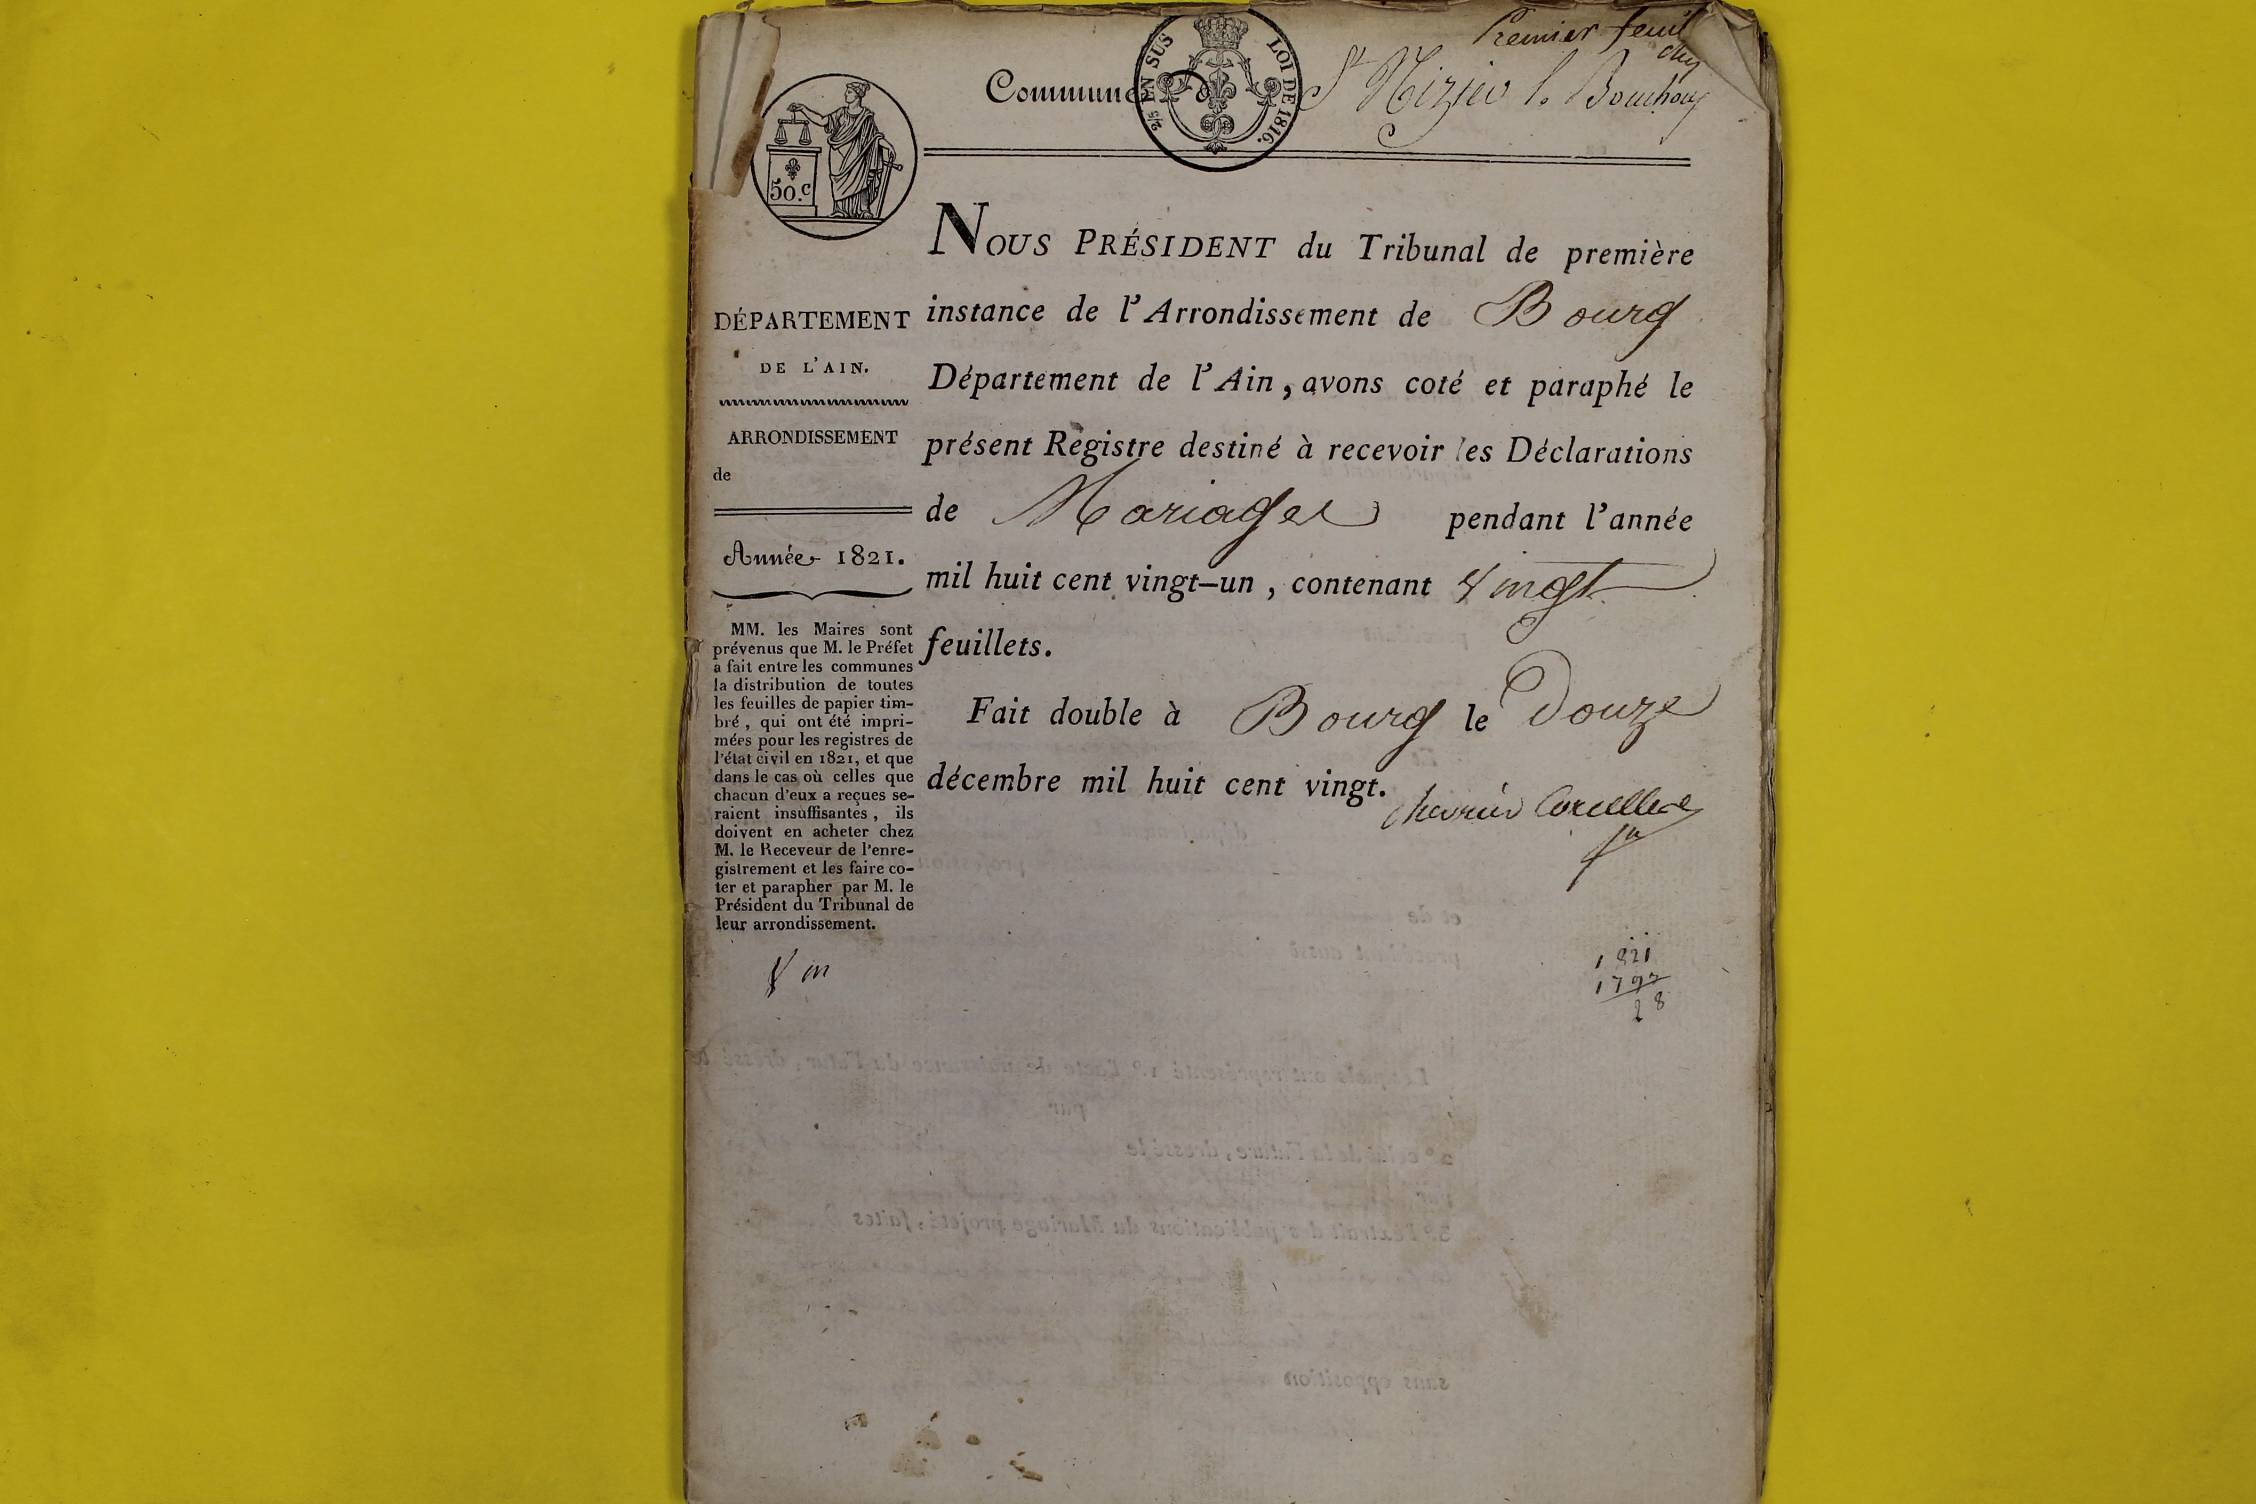 Premier feuil
Commune de St Nizier l. Bouchoux
2/5 EN SUS
LOI DE 1816.
50.c
NOUS PRÉSIDENT du Tribunal de première
instance de l'Arrondissement de Bourg
Département de l'Ain, avons coté et paraphé le
présent Registre destiné à recevoir les Déclarations
de Mariages pendant l'année
mil huit cent vingt-un, contenant Vingt
feuillets.
Fait double à Bourg le Douze
décembre mil huit cent vingt.
chevrier Corcelles
DÉPARTEMENT
DE L'AIN.
ARRONDISSEMENT
de
Année 1821.
MM. les Maires sont
prévenus que M. le Préfet
a fait entre les communes
la distribution de toutes
les feuilles de papier tim-
bré, qui ont été impri-
mées pour les registres de
l'état civil en 1821, et que
dans le cas où celles que
chacun d'eux a reçues se-
raient insuffisantes, ils
doivent en acheter chez
M. le Receveur de l'enre-
gistrement et les faire co-
ter et parapher par M. le
Président du Tribunal de
leur arrondissement.
1821
1797
28